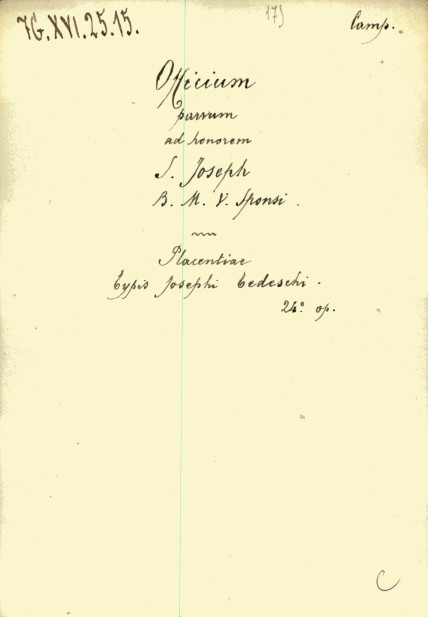 7G.XVI.25.15.
175
Camp.
Officium
parvum
ad honorem
S. Joseph
B. M. V. Sponsi.
Placentiae
Typis Josephi Tedeschi.
24° op.
C